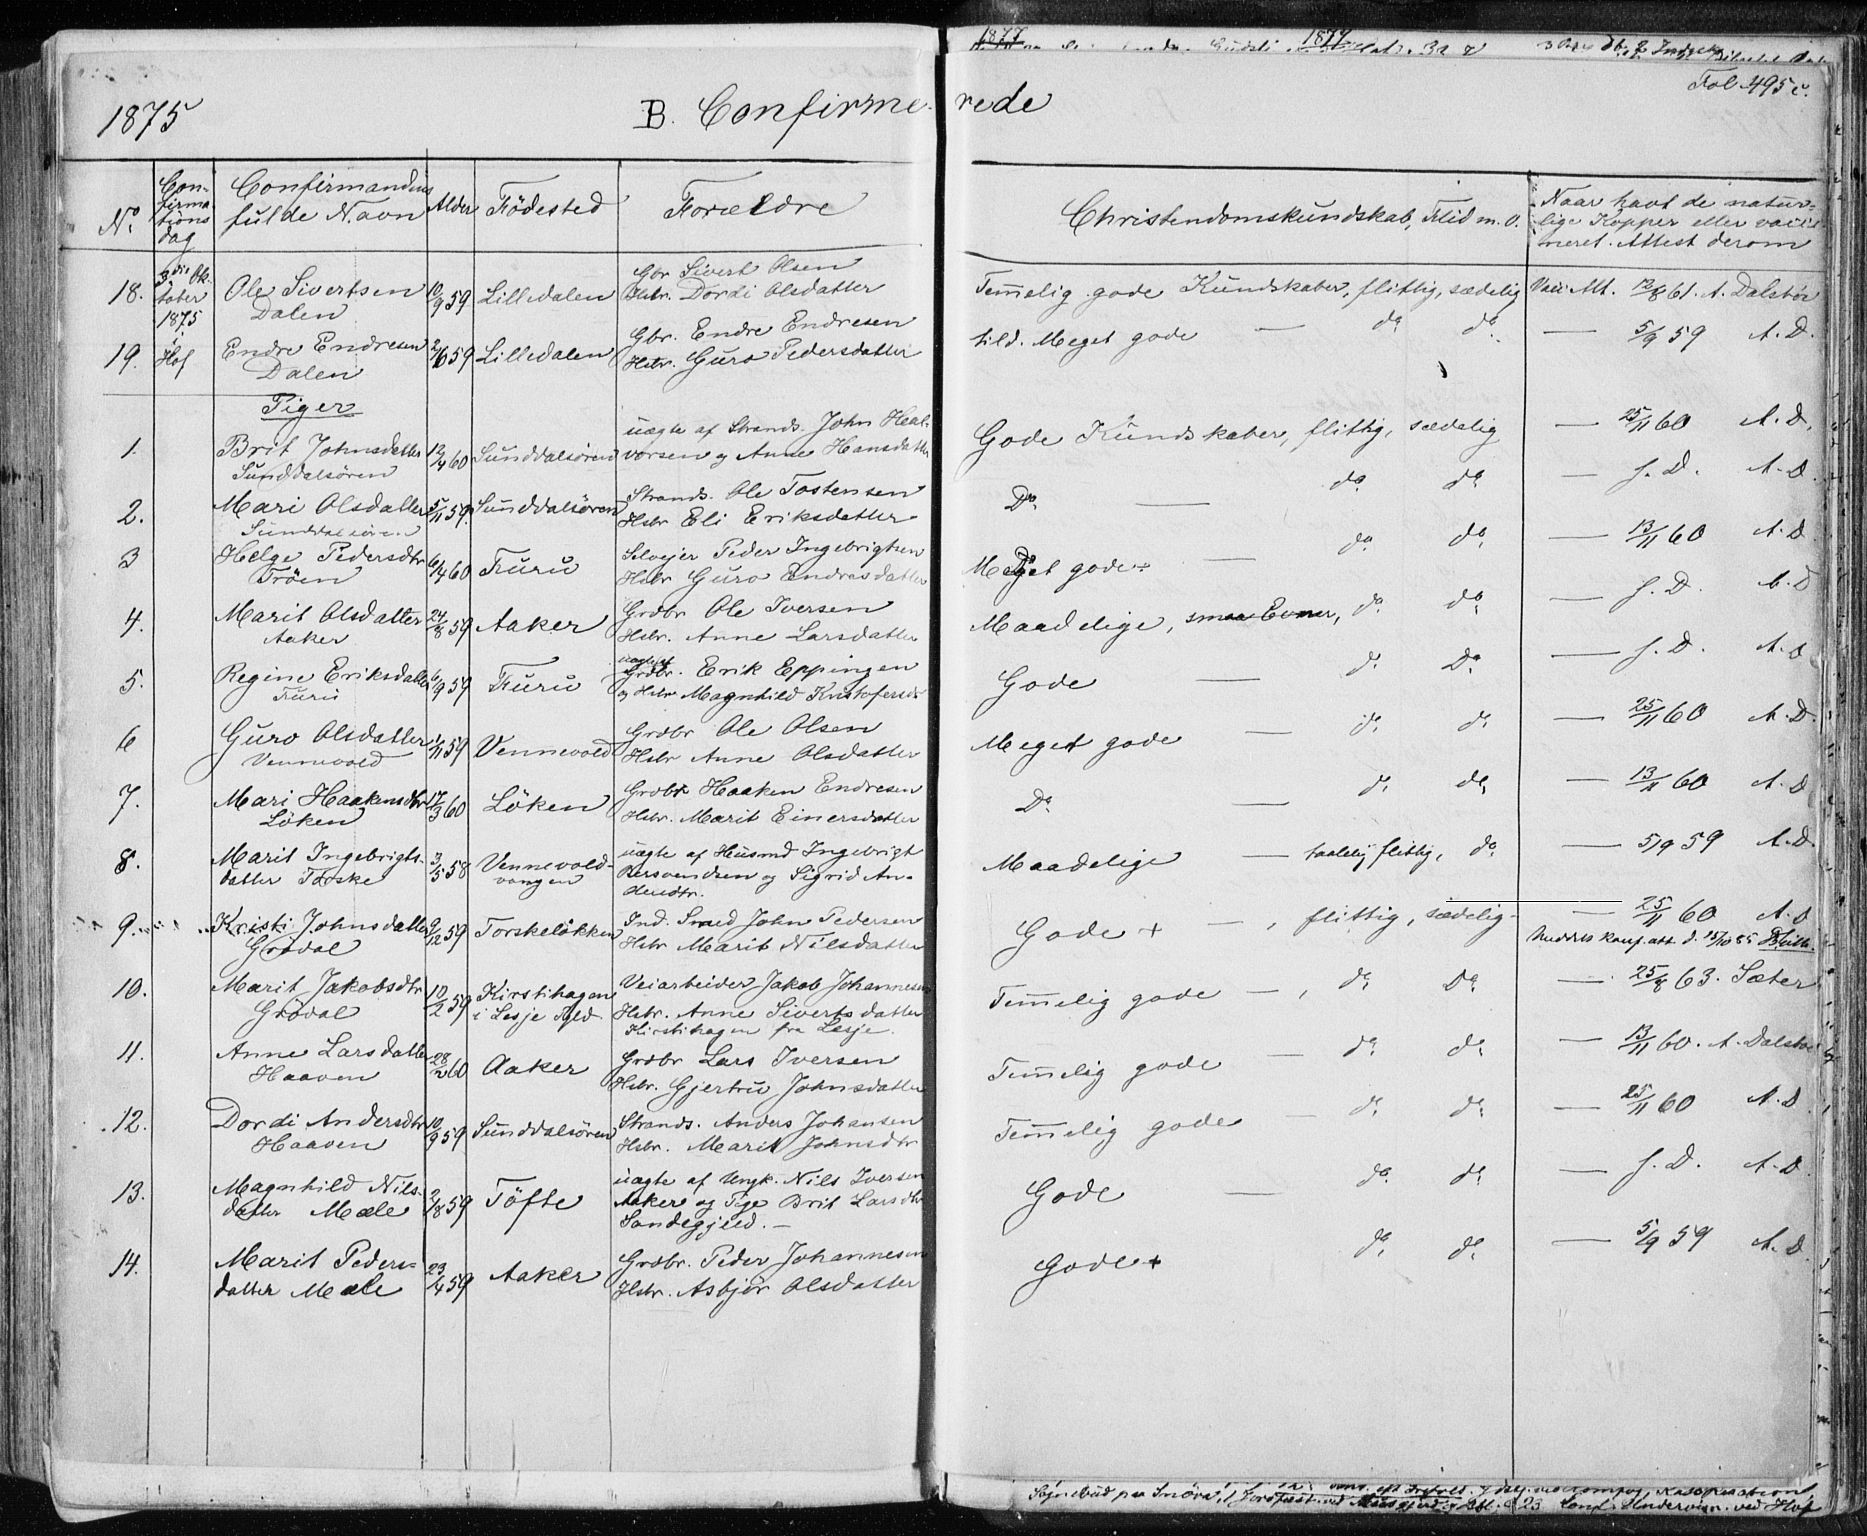 1877 1879
Fol 495 c.
1875 B. Confirmerede
No. Confirmationsdag Confirmandens fulde Navn Alder Födested Forældre Christendomskundskab, Flid m. O. Naar havt de naturlige Kopper eller vaccineret. Attest derom
18. 3die Oktober 1875 Ole Sivertsen Dalen 10/9 59 Lilledalen Gbr Sivert Olsen Hstr. Dordi Olsdatter Temmelig gode Kundskaber, flittig, sædelig Vacc. Att. 12/8 61. A. Dalsbø
19. Hof Endre Endresen Dalen 2/6 59 Lilledalen Gbr. Endre Endresen Hstr. Guro Pedersdatter tild. Meget gode — do do — 5/9 59 A. D.
Piger
1. Brit Johnsdatter Sunddalsören 12/4 60 Sunddalsören uægte af Strands. John Halvorsen og Anne Hansdatter Gode Kundskaber, flittig, sædelig — 25/11 60 A. D.
2. Mari Olsdatter Sunddalsören 5/11 59 Sunddalsören Strands. Ole Tostensen Hstr Eli Eriksdatter Do — do do — f. D. A. D
3 Helge Pedersdtr Tröen 6/4 60 Furu Selvejer Peder Ingebrigtsen Hstr Guro Endresdatter Meget gode — do do — 13/11 60 A. D
4. Marit Olsdatter Aaker 24/8 59 Aaker Grdbr Ole Iversen Hstr. Anne Larsdatter Maadelige, smaa Evner, do do — f. D. A. D
5. Regine Eriksdatter Furu 6/9 59 Furu uægte af Grdbr. Erik Eppingen og Hstr Magnhild Kristofersdr Gode — do Do — f. D. A. D
6 Guro Olsdatter Vennevold 1/11 59 Vennevold Grdbr Ole Olsen Hstr Anne Olsdatter Meget gode — do do — 25/11 60 A. D.
7. Mari Haakensdtr Löken 17/3 60 Löken Grdbr Haaken Endresen Hstr. Marit Einersdatter Do — do do — 13/11 60 A. D
8. Marit Ingebrigtsdatter Torske 3/5 58 Vennevoldvangen uægte af Husmd Ingebrigt Bersvendsen og Sigrid Andersdtr. Maadelige — taalelig flittig, do — 5/9 59 A. D.
9. Kristi Johnsdatter Grödal 9/12 59 Torskelökken Ind. Smed John Pedersen Hstr Marit Nilsdatter Gode + —, flittig, sædelig — 25/11 60 A. D
Meddelt konf. att. d. 15/10 85
10. Marit Jakobsdtr Grödal 10/2 59 Kirstihagen i Lesje Pgld Veiarbeider Jakob Johannesen Hstr. Anne Sivertsdatter Kirstihagen fra Lesje. Temmelig gode —, do Do — 25/8 63. Sæter
11. Anne Larsdatter Haaven 28/2 60 Aaker Grdbr Lars Iversen Hstr. Gjertru Johnsdatter Temmelig gode — do do — 13/11 60. A. Dalsbø
12. Dordi Andersdtr Haaven 10/9 59 Sunddalsören Strands. Anders Johansen Hstr. Marit Johnsdtr Temmelig gode — do do — 25/11 60 A. D
13. Magnhild Nilsdatter Mæle 2/8 59 Töfte uægte af Ungk. Nils Iversen Aaker og Pige Brit Larsdtr Sandegjerd. — Gode — do do — f. D. A. D
14. Marit Pedersdatter Mæle 23/4 59 Aaker Grdbr. Peder Johannesen Hstr. Asbjör Olsdatter Gode + do do — 5/9 59 A. D